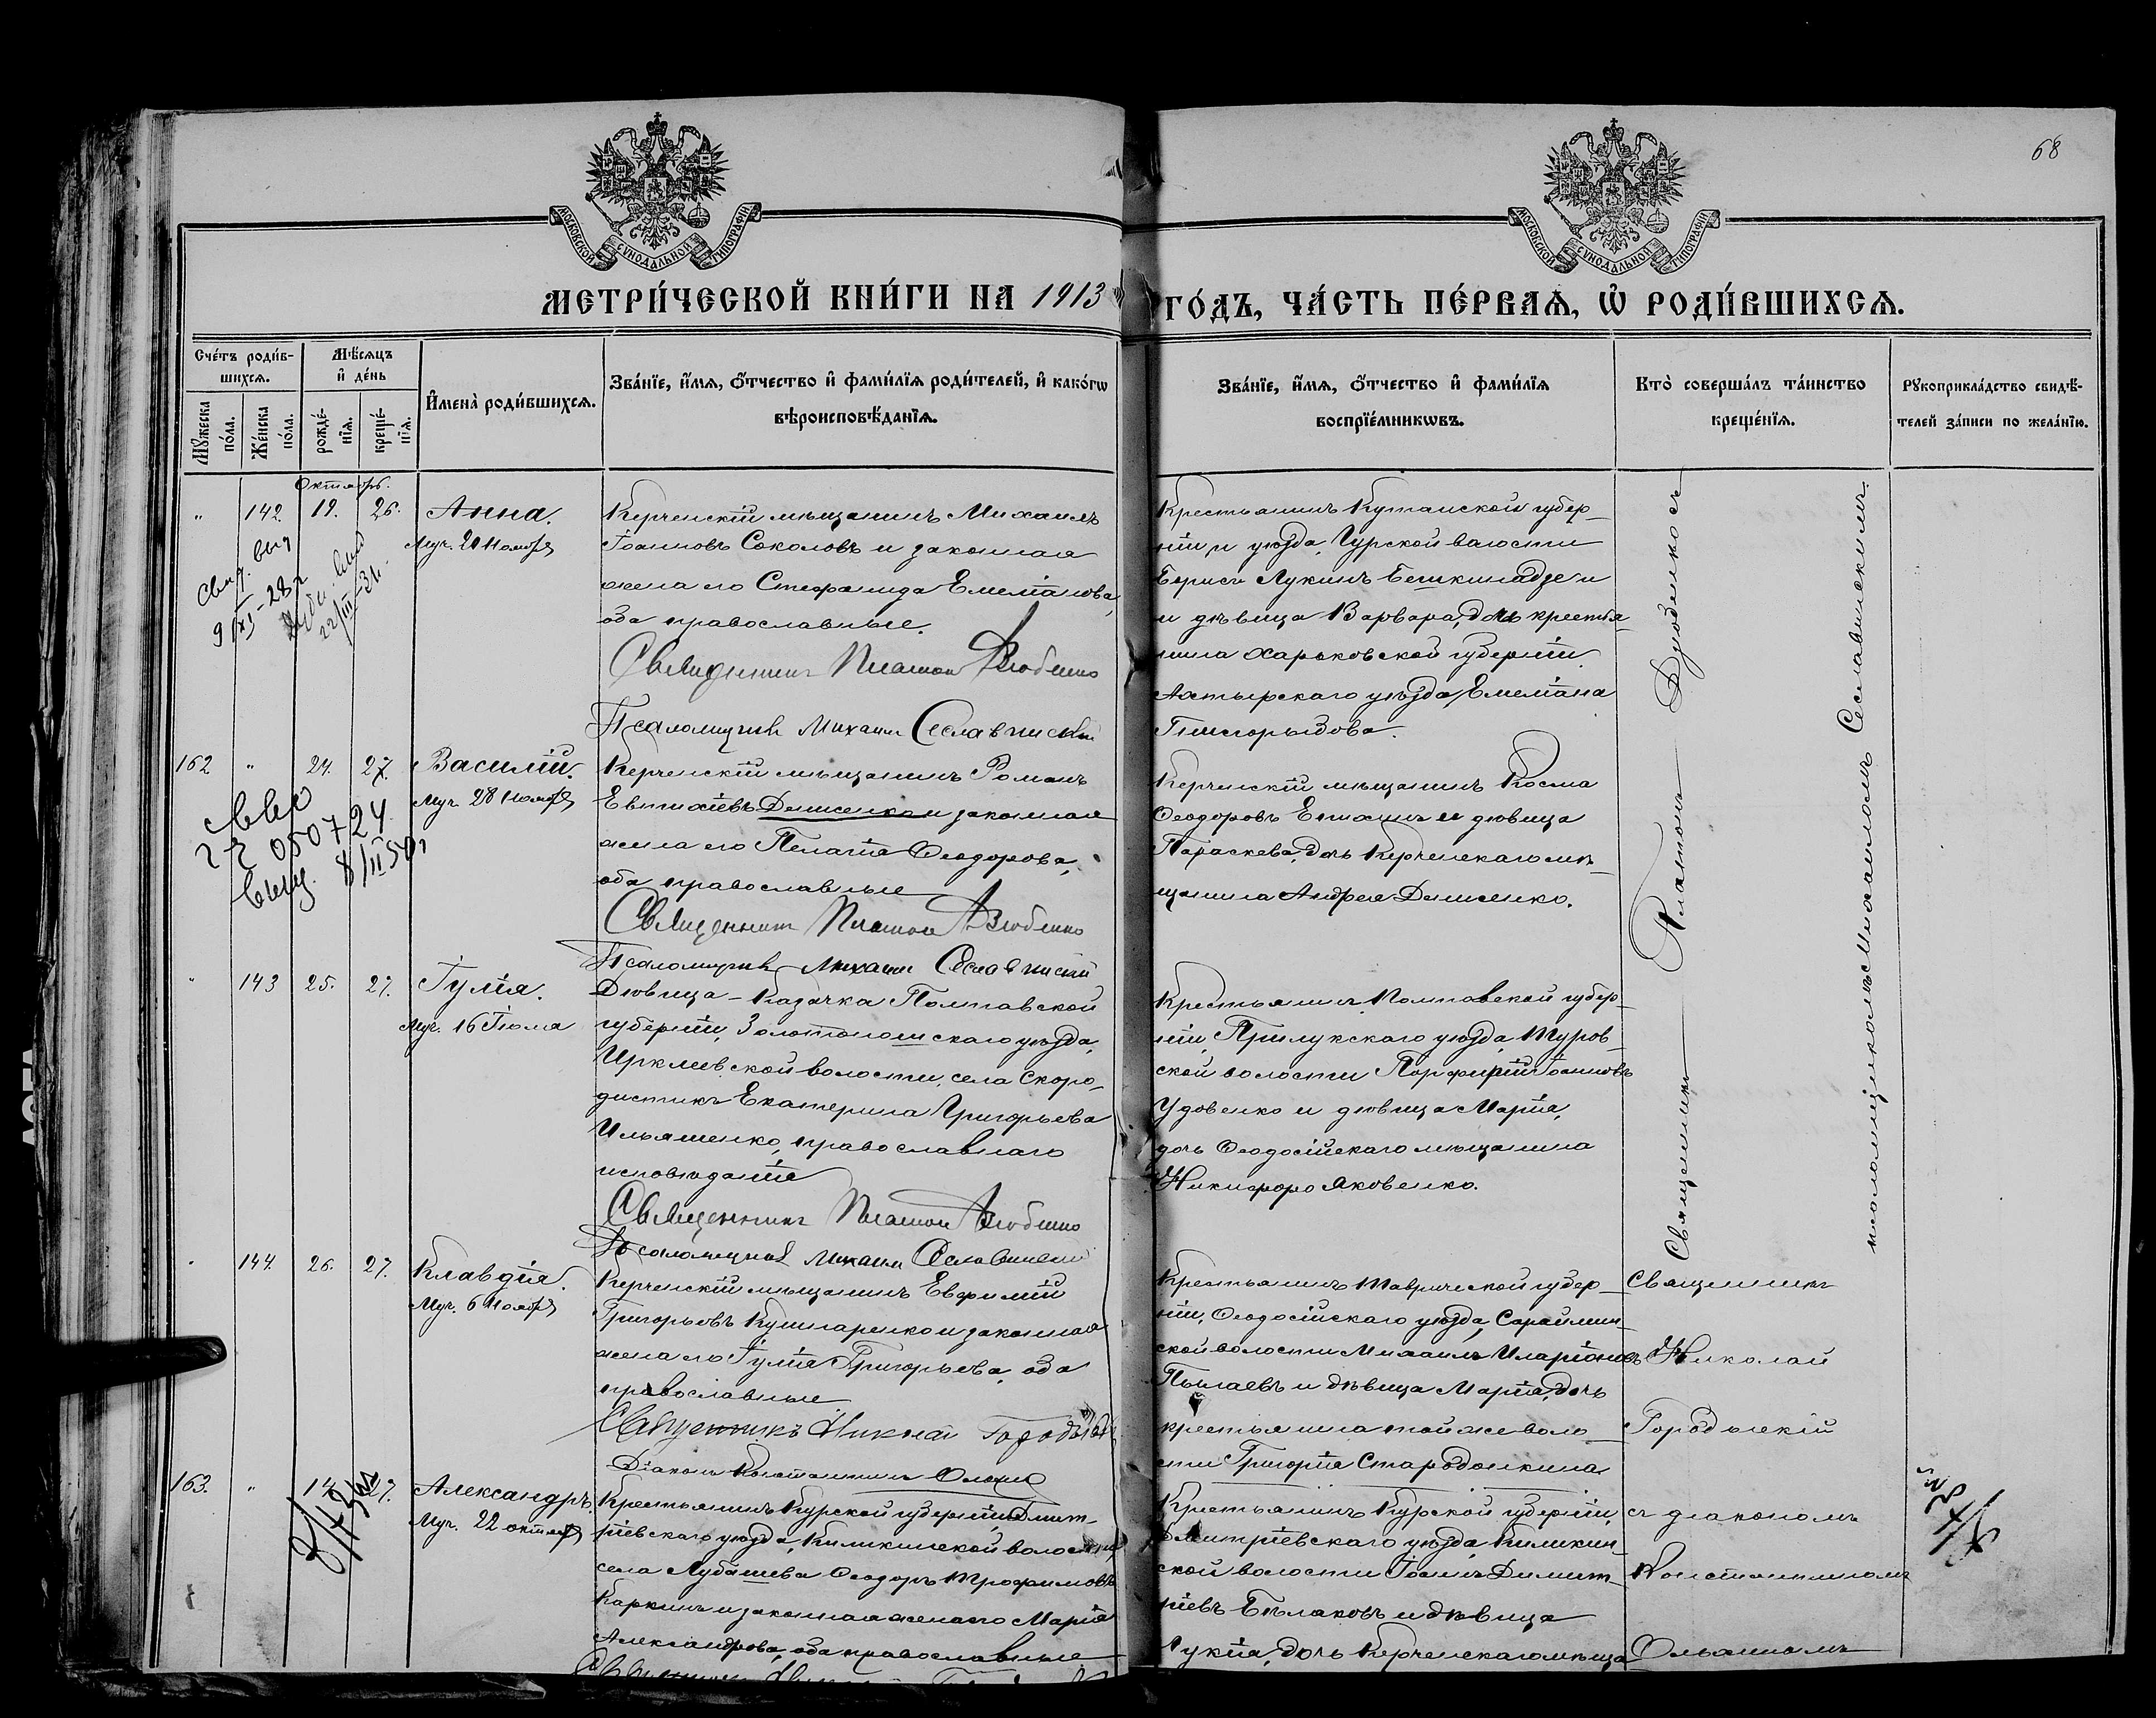 68
МОСКОВСКОЙ СУНОДАЛЬНОЙ ТИПОГРАФІИ
МОСКОВСКОЙ СУНОДАЛЬНОЙ ТИПОГРАФІИ
МЕТРИ́ЧЕСКОЙ КНИ́ГИ НА 1913 ГО́ДЪ, ЧА́СТЬ ПЕ́РВАѦ, Ѡ РОДИ́ВШИХСѦ.
Сче́тъ роди́в-
шихсѧ.
Мꙋжеска по́ла.
Же́нска по́ла.
Мѣ́сѧцъ
и҆ де́нь
рожде́-
нїѧ.
креще́-
нїѧ.
И҆мена̀ роди́вшихсѧ.
Зва́нїе, и҆́мѧ, о҆́тчество и҆ фами́лїѧ роди́телей, и҆ како́гѡ
вѣроисповѣ́данїѧ.
Зва́нїе, и҆́мѧ, о҆́тчество и҆ фами́лїѧ
воспрїе́мникѡвъ.
Кто̀ соверша́лъ та́инство
креще́нїѧ.
Рꙋкоприкла́дство свидѣ́-
телей за́писи по жела́нїю.
Октябрь.
" 142. 19. 26. Анна.
Муч. 20 Ноября
Керченскій мѣщанинъ Михаилъ
Іоанновъ Соколовъ и законная
жена его Стефанида Емеліанова,
оба православные.
Священникъ Платон Дзюбенко
Псаломщикъ Михаил Сеславинскій
Крестьянинъ Кутаиской губер-
ніи и уѣзда, Гурской волости
Бериси Лукинъ Бешкинадзе и
и дѣвица Варвара, дочь крестья-
нина Харьковской губерніи
Ахтырскаго уѣзда Емеліана
Свид. выд
9/XI-28 г
22/III-31.
162 " 24. 27. Василій.
Муч. 28 Ноября
050724
8/II 50
Керченскій мѣщанинъ Романъ
Евтихіевъ Денисенко и законная
жена его Пелагія Ѳеодорова,
оба православные
Священник Платон Дзюбенко
Псаломщикъ Михаил Сеславинскій
Керченскій мѣщанинъ Косма
Ѳеодоровъ и дѣвица
Параскева, дочь Керченскаго мѣ-
щанина Андрея Денисенко.
" 143 25. 27. Іулія.
Муч. 16 Іюля
Дѣвица-Казачка Полтавской
губерніи, Золотоношскаго уѣзда,
Ирклеевской волости, села Скоро-
дистикъ Екатерина Григорьева
Ильяшенко, православнаго
исповѣданія
Священник Платон Дзюбенко
Псаломщикъ Михаил Сеславинскій
Крестьянинъ Полтавской губер-
ніи, Прилукскаго уѣзда, Туров-
ской волости Порфирій Іоанновъ
Удовенко и дѣвица Марія,
дочь Ѳеодосійскаго мѣщанина
Никифора Яковенко.
Священникъ Платонъ Дзюбенко съ
псаломщикомъ Михаиломъ Сеславинскимъ.
" 144. 26. 27. Клавдія.
Муч. 6 Ноября
Керченскій мѣщанинъ Евфимій
Григорьевъ Кушнаренко и законная
жена его Іулія Григорьева, оба
православные
Священникъ Николай Городынскій
Діаконъ Константинъ
Крестьянинъ Таврической губер-
ніи, Ѳеодосійскаго уѣзда, Сараймин-
ской волости Михаилъ Иларіоновъ
Пылаевъ и дѣвица Марія, дочь
крестьянина той же воло-
сти Григорія Стародонкина
Священникъ
Николай
Городынскій
163. " 14. 27. Александръ.
Муч. 22 октября
Крестьянинъ Курской губерніи, Дмит-
ріевскаго уѣзда, Киликинской волости,
села Лубошева Ѳеодоръ Трофимовъ
Каркинъ и законная жена его Марія
Александрова, оба православные
Крестьянинъ Курской губерніи,
Дмитріевскаго уѣзда, Киликин-
ской волости Іоаннъ Димит-
ріевъ Бѣлаковъ и дѣвица
Лукія, дочь Керченскаго мѣща-
съ діакономъ
Константиномъ